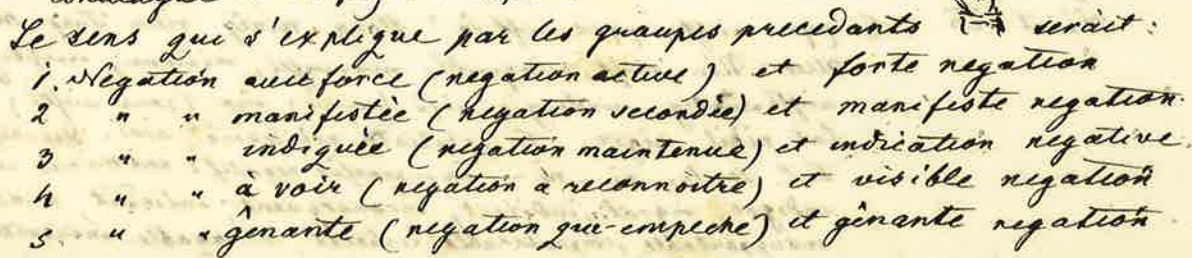 Le sens qui s'explique par les groupes precedants serait:
1. Negation avec force (negation active) et forte negation
2 " " manifestée (negation secondée) et manifeste negation.
3 " " indiquée (negation maintenue) et indication negative.
4 " " à voir (negation à reconnoitre) et visible negation
5. " " gênante (negation qui-empeche) et gênante negation